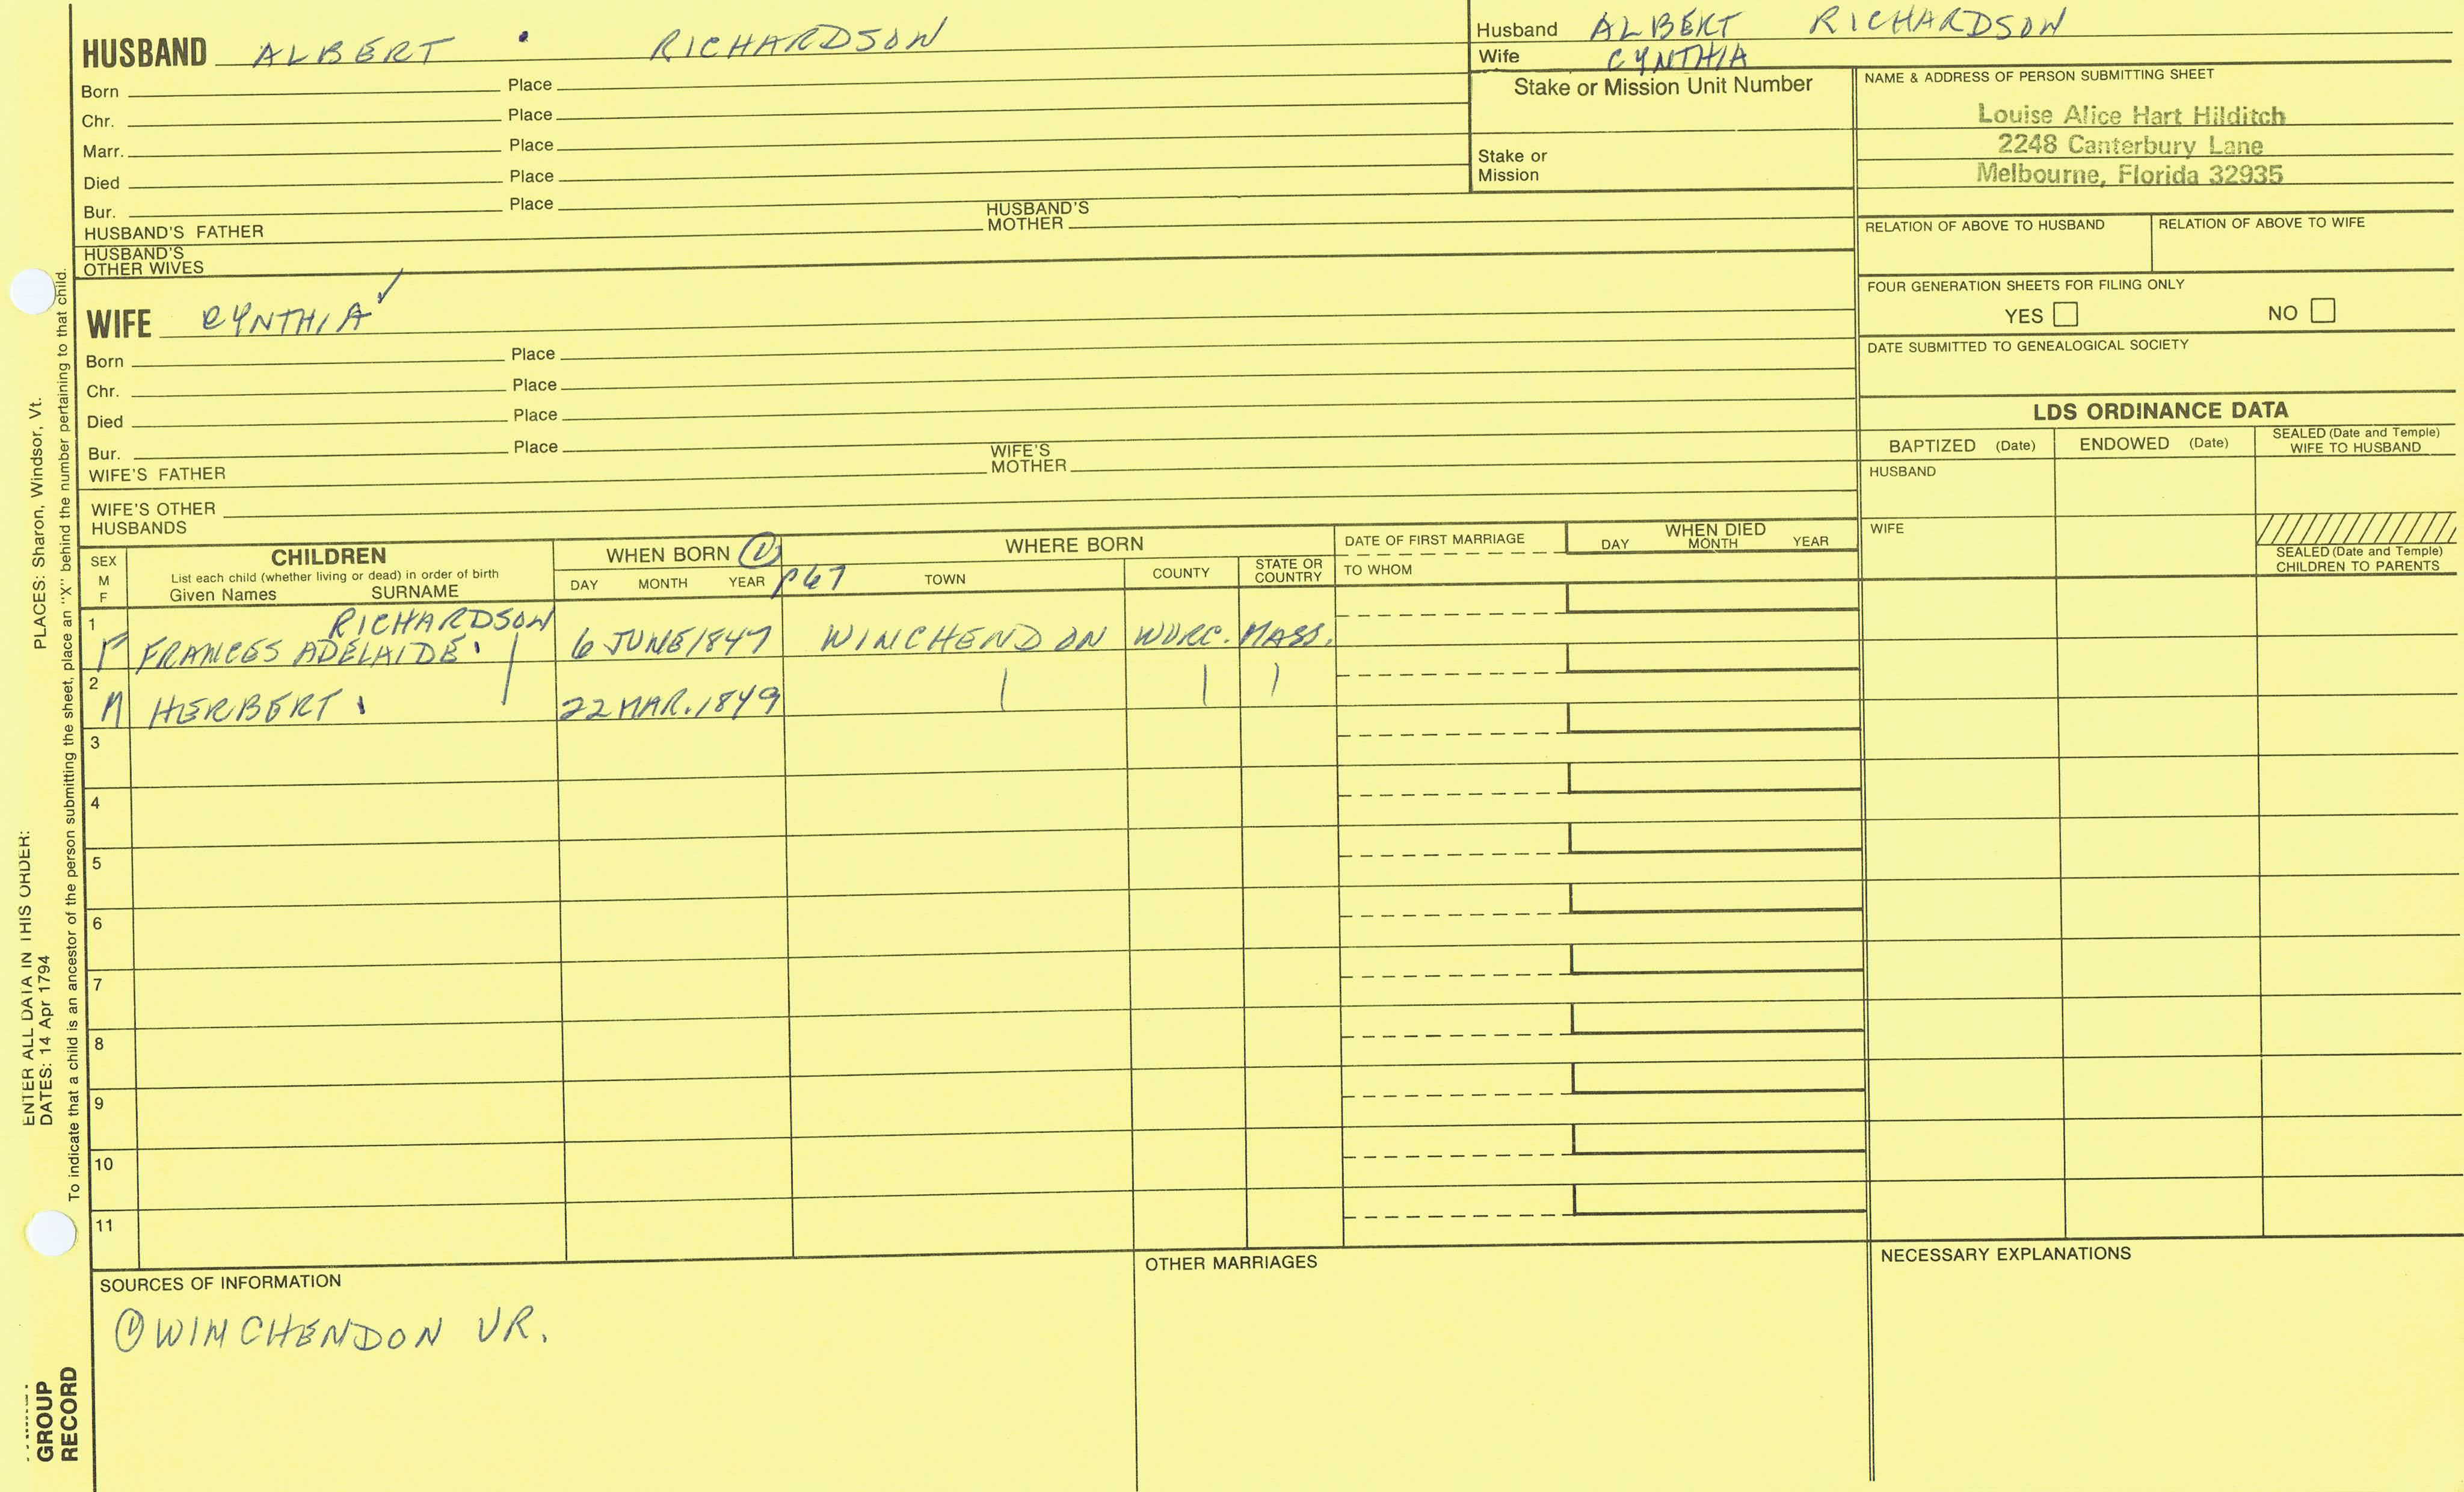 HUSBAND ALBERT RICHARDSON
Born Place
Chr. Place
Marr. Place
Died Place
Bur. Place
HUSBAND'S FATHER HUSBAND'S MOTHER
HUSBAND'S OTHER WIVES
Husband ALBERT RICHARDSON
Wife CYNTHIA
Stake or Mission Unit Number
Stake or Mission
NAME & ADDRESS OF PERSON SUBMITTING SHEET
Louise Alice Hart Hilditch
2248 Canterbury Lane
Melbourne, Florida 32935
RELATION OF ABOVE TO HUSBAND RELATION OF ABOVE TO WIFE
FOUR GENERATION SHEETS FOR FILING ONLY
YES NO
DATE SUBMITTED TO GENEALOGICAL SOCIETY
WIFE CYNTHIA
Born Place
Chr. Place
Died Place
Bur. Place
WIFE'S FATHER WIFE'S MOTHER
WIFE'S OTHER HUSBANDS
LDS ORDINANCE DATA
BAPTIZED (Date) ENDOWED (Date) SEALED (Date and Temple) WIFE TO HUSBAND
HUSBAND
WIFE
SEALED (Date and Temple) CHILDREN TO PARENTS
SEX M F
CHILDREN
List each child (whether living or dead) in order of birth
Given Names SURNAME
WHEN BORN ①
DAY MONTH YEAR P67
WHERE BORN
TOWN COUNTY STATE OR COUNTRY
DATE OF FIRST MARRIAGE
TO WHOM
WHEN DIED
DAY MONTH YEAR
1 RICHARDSON
F FRANCES ADELAIDE 6 JUNE 1847 WINCHENDON WORC. MASS.
2
M HERBERT 22 MAR. 1849
3
4
5
6
7
8
9
10
11
SOURCES OF INFORMATION
① WINCHENDON VR.
OTHER MARRIAGES
NECESSARY EXPLANATIONS
ENTER ALL DATA IN THIS ORDER:
DATES: 14 Apr 1794
PLACES: Sharon, Windsor, Vt.
To indicate that a child is an ancestor of the person submitting the sheet, place an "X" behind the number pertaining to that child.
GROUP
RECORD